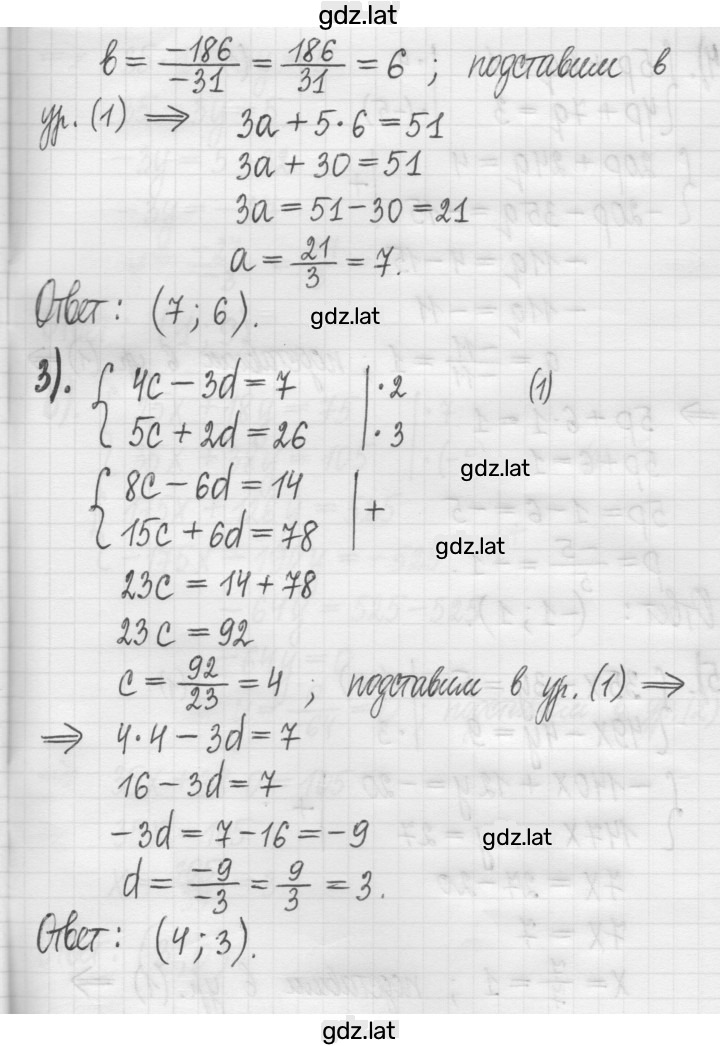 gdz.lat
в = -186/-31 = 186/31 = 6 ; подставим в
ур. (1) ⇒ 3a + 5·6 = 51
3a + 30 = 51
3a = 51 - 30 = 21
a = 21/3 = 7.
Ответ: (7; 6).
gdz.lat
3). { 4c - 3d = 7 | ·2 (1)
5c + 2d = 26 | ·3
gdz.lat
{ 8c - 6d = 14 | +
15c + 6d = 78
gdz.lat
23c = 14 + 78
23c = 92
c = 92/23 = 4 ; подставим в ур. (1) ⇒
⇒ 4·4 - 3d = 7
16 - 3d = 7
-3d = 7 - 16 = -9
gdz.lat
d = -9/-3 = 9/3 = 3.
Ответ: (4; 3).
gdz.lat